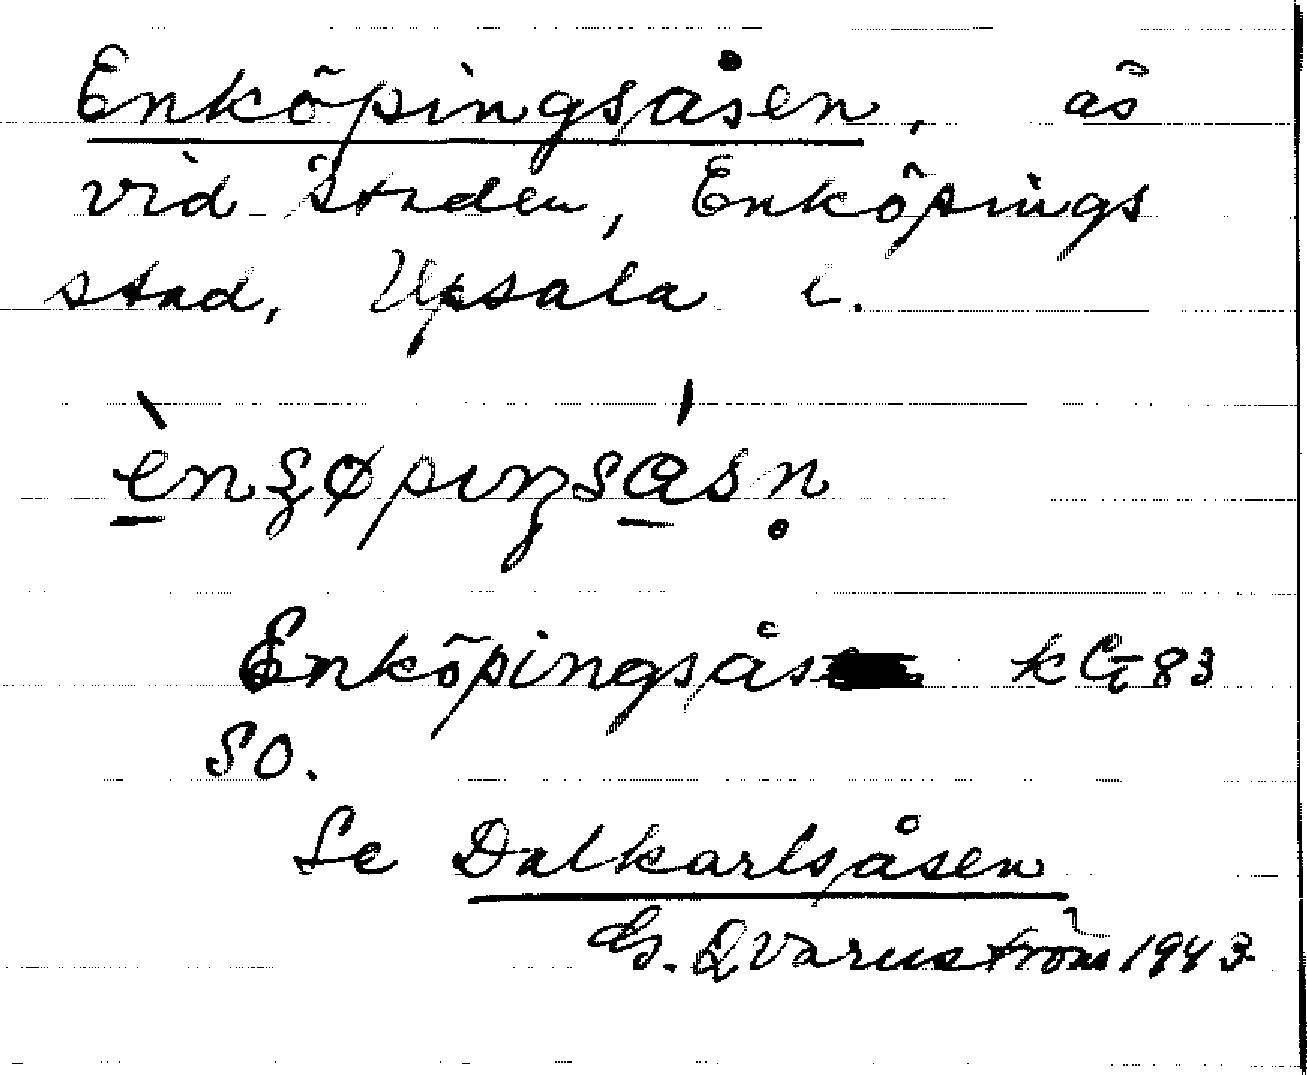 Enköpingsåsen, ås
vid staden, Enköpings
stad, Upsala l.
Enköpingsås kG 83
SO.
Se Dalkarlsåsen
G. Qvarnström 1943